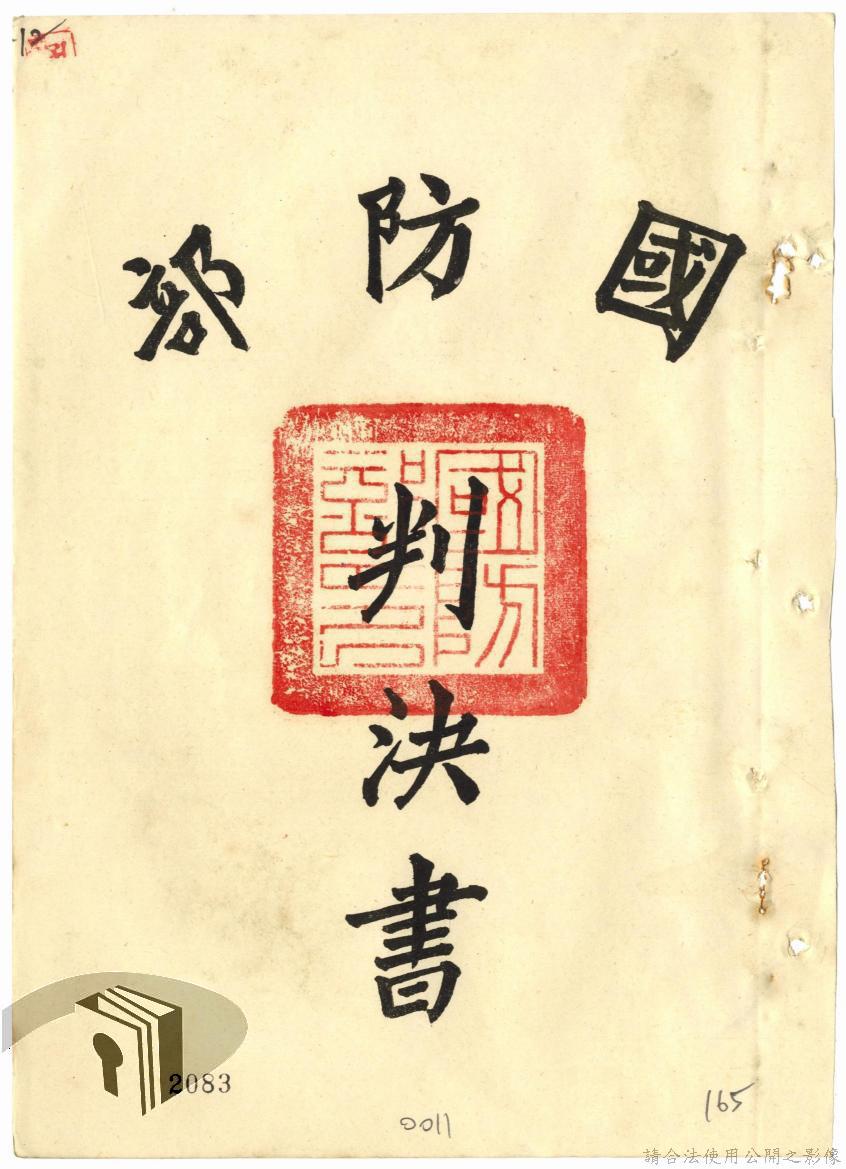 國防部
判決書
2083
0011
165
請合法使用公開之影像